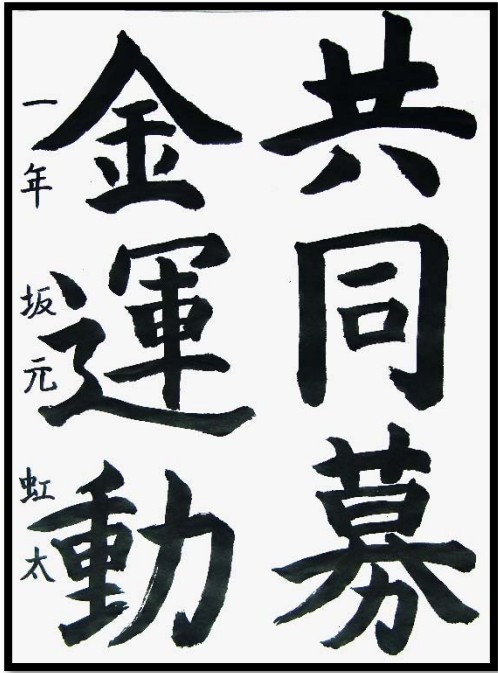 共同募
金運動
一年 坂元 虹太